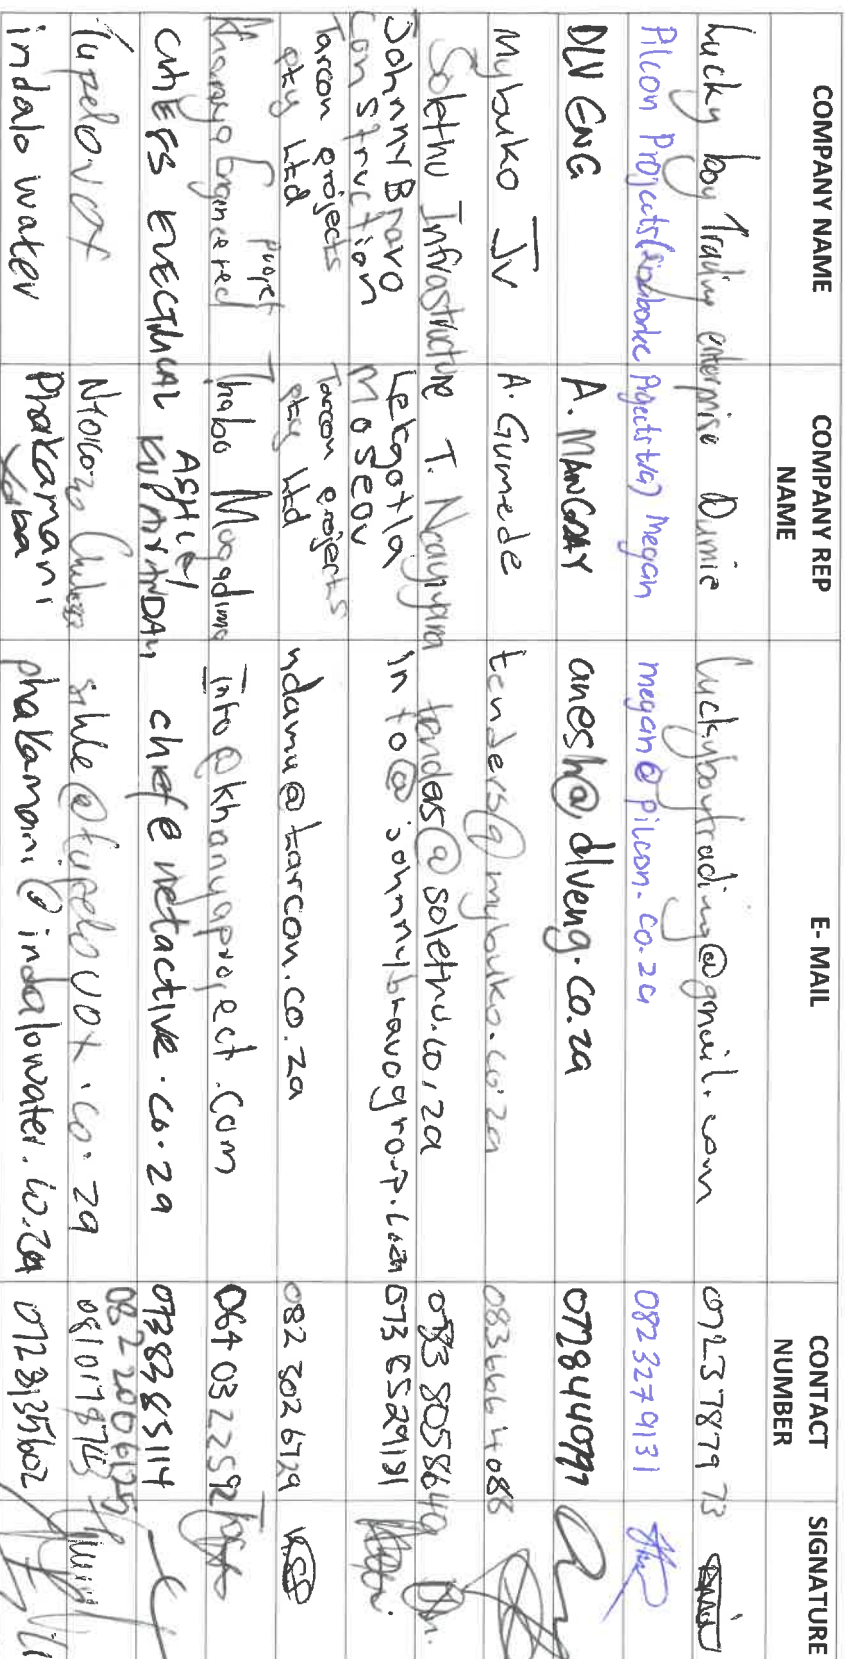 COMPANY NAME COMPANY REP NAME E- MAIL CONTACT NUMBER SIGNATURE
Lucky boy Trading enterprise Dumie luckyboytrading@gmail.com 0723787973
Pilcon Projects Projects t/a) Megan megan@pilcon.co.za 0823279131
DLV ENG A. MANGRAY anesh@dlveng.co.za
Mybuko JV A. Gumede tenders@mybuko.co.za 0836664088
Solethu Infrastructure T. tenders@solethu.co.za
Johnny Bravo Construction Lekgotla Moseou info@johnnybravogroup.com
Tarcon projects pty Ltd Tarcon projects pty Ltd ndamu@tarcon.co.za 082 302 6729
Khanya Engineered project Thabo Mogadima info@khanyaproject.com 064 032 2592
CHIEFS ELECTRICAL ASHLEY chiefe netactive.co.za 0738385114
Tupelovox Ntokozo sihle@tupelovox.co.za 082 2006125
Indalo water Phakamani Xaba phakamani@indalowater.co.za 0728135602